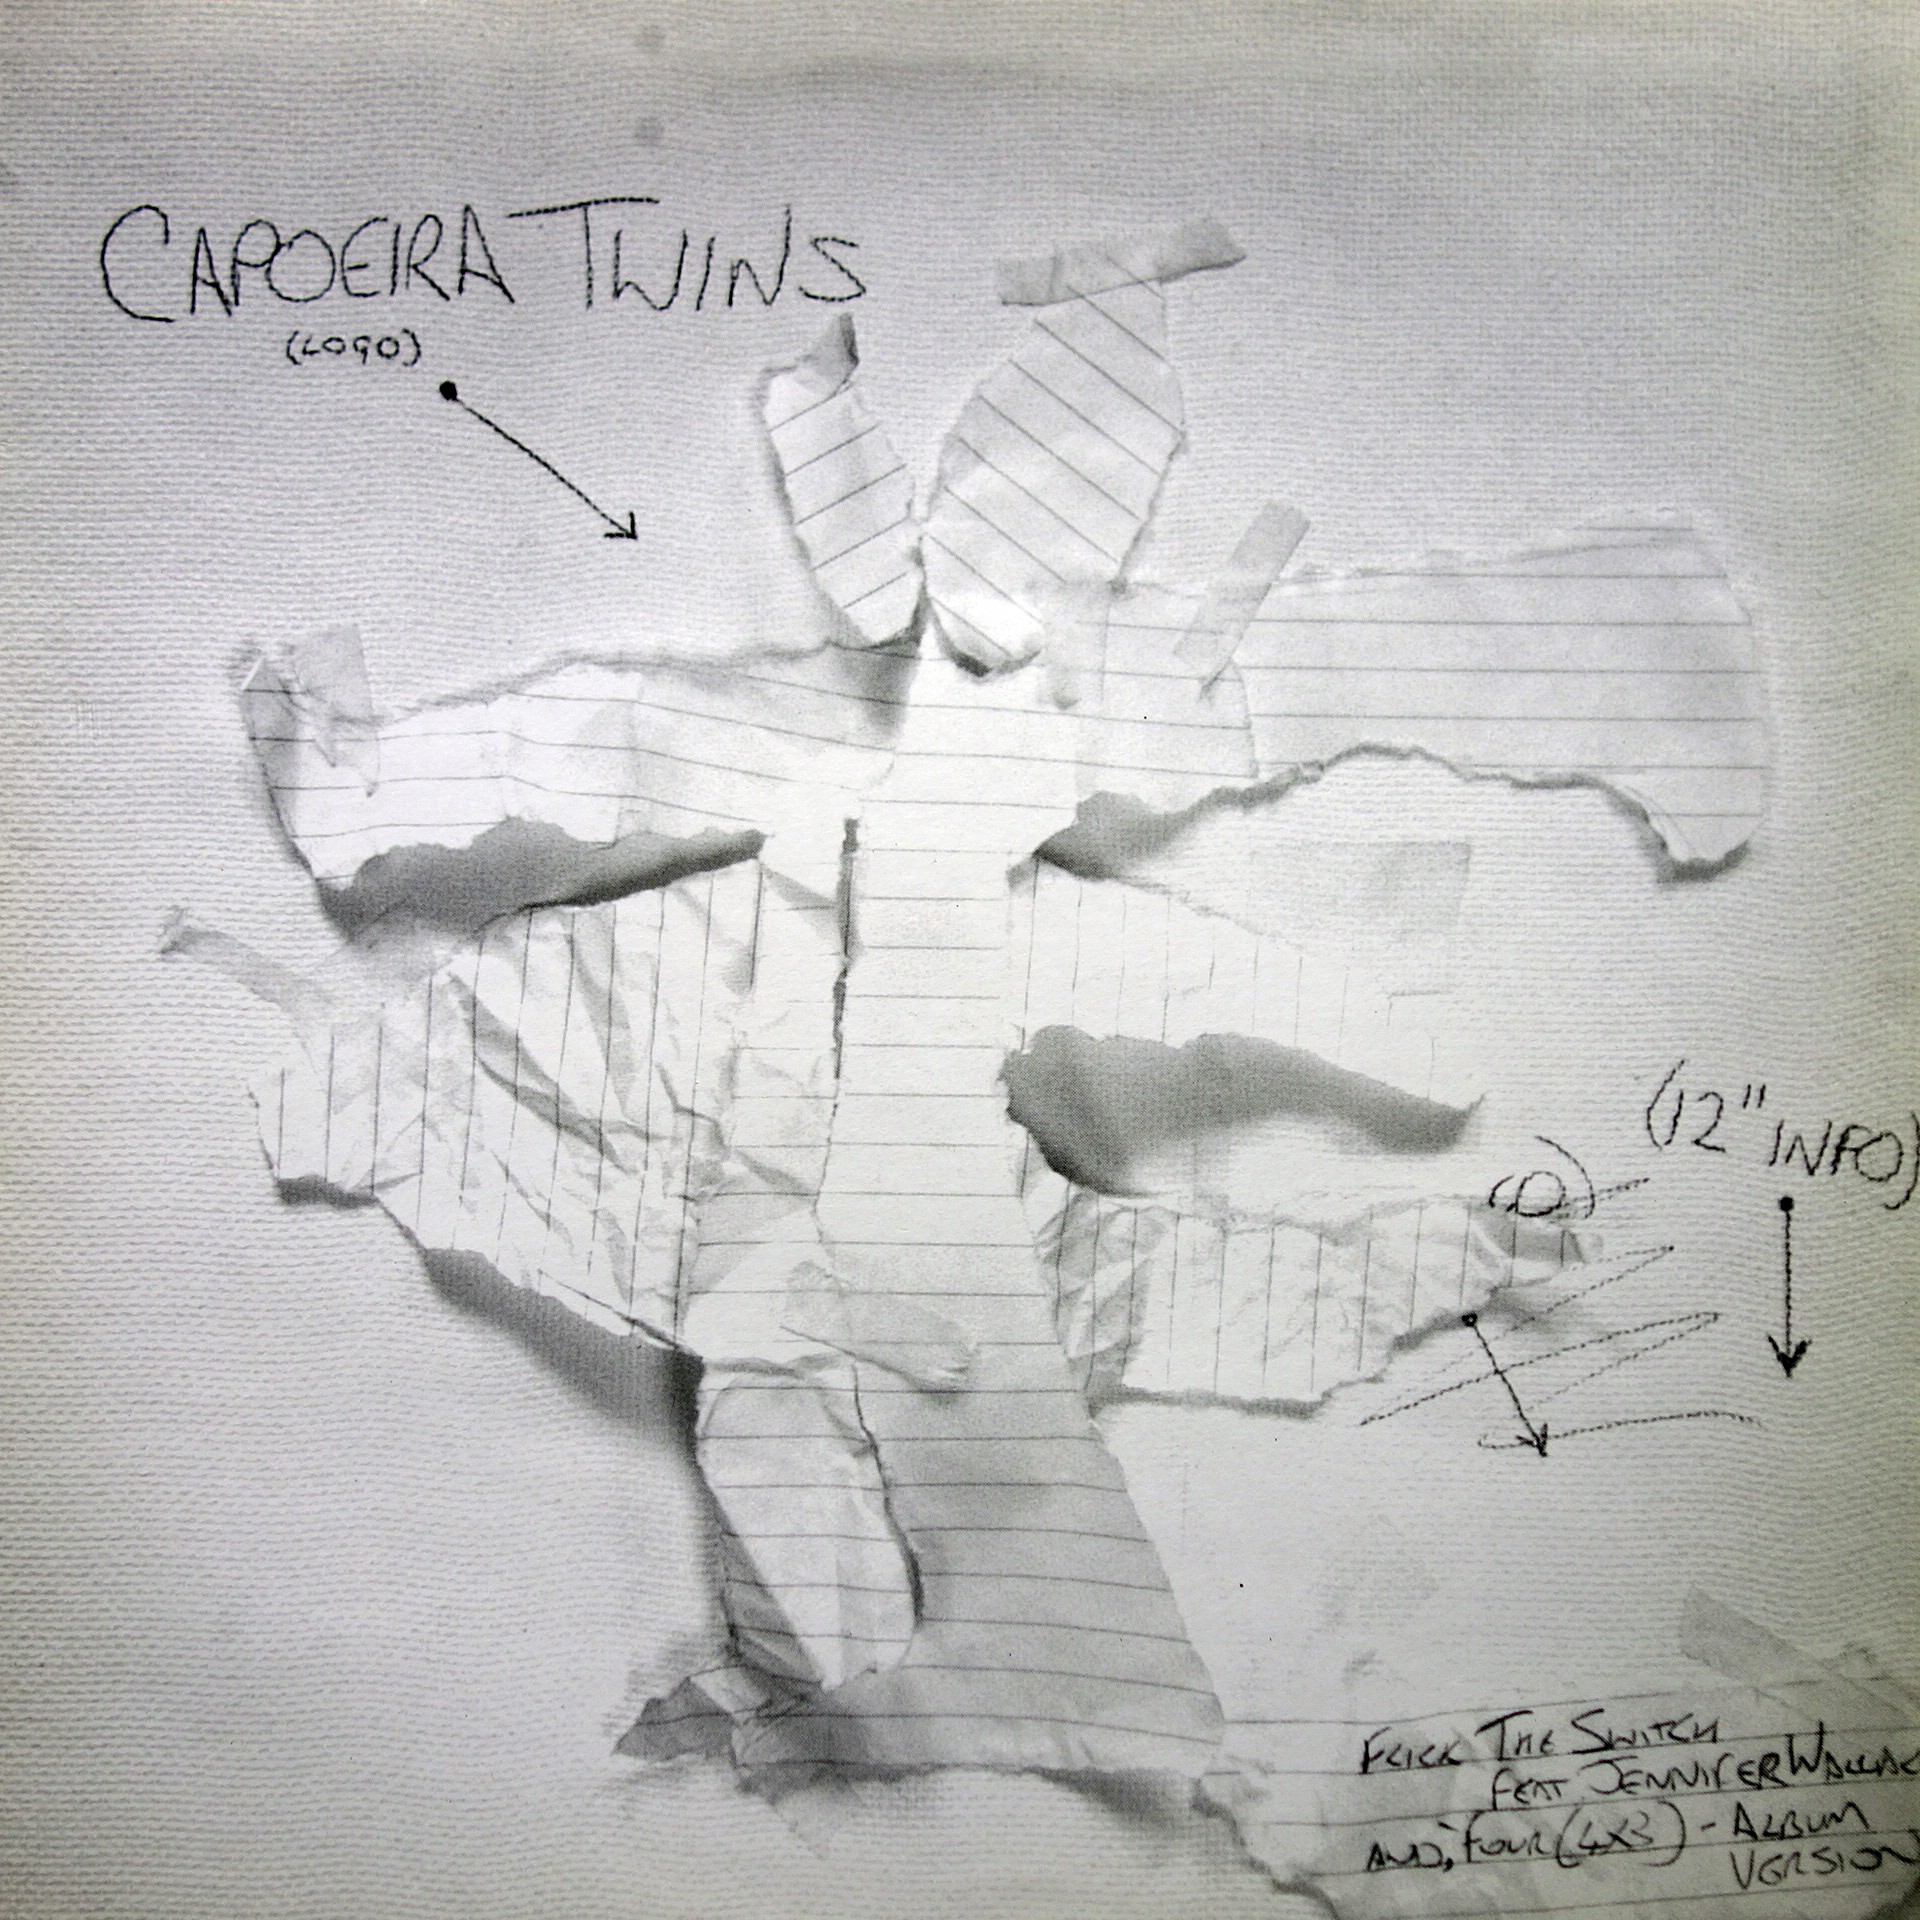 CAPOEIRA TWINS
(LOGO)
(12" INFO)
FLICK THE SWITCH
FEAT. JENNIFER WALLAC
AND, FOUR (4X3) - ALBUM
VERSION